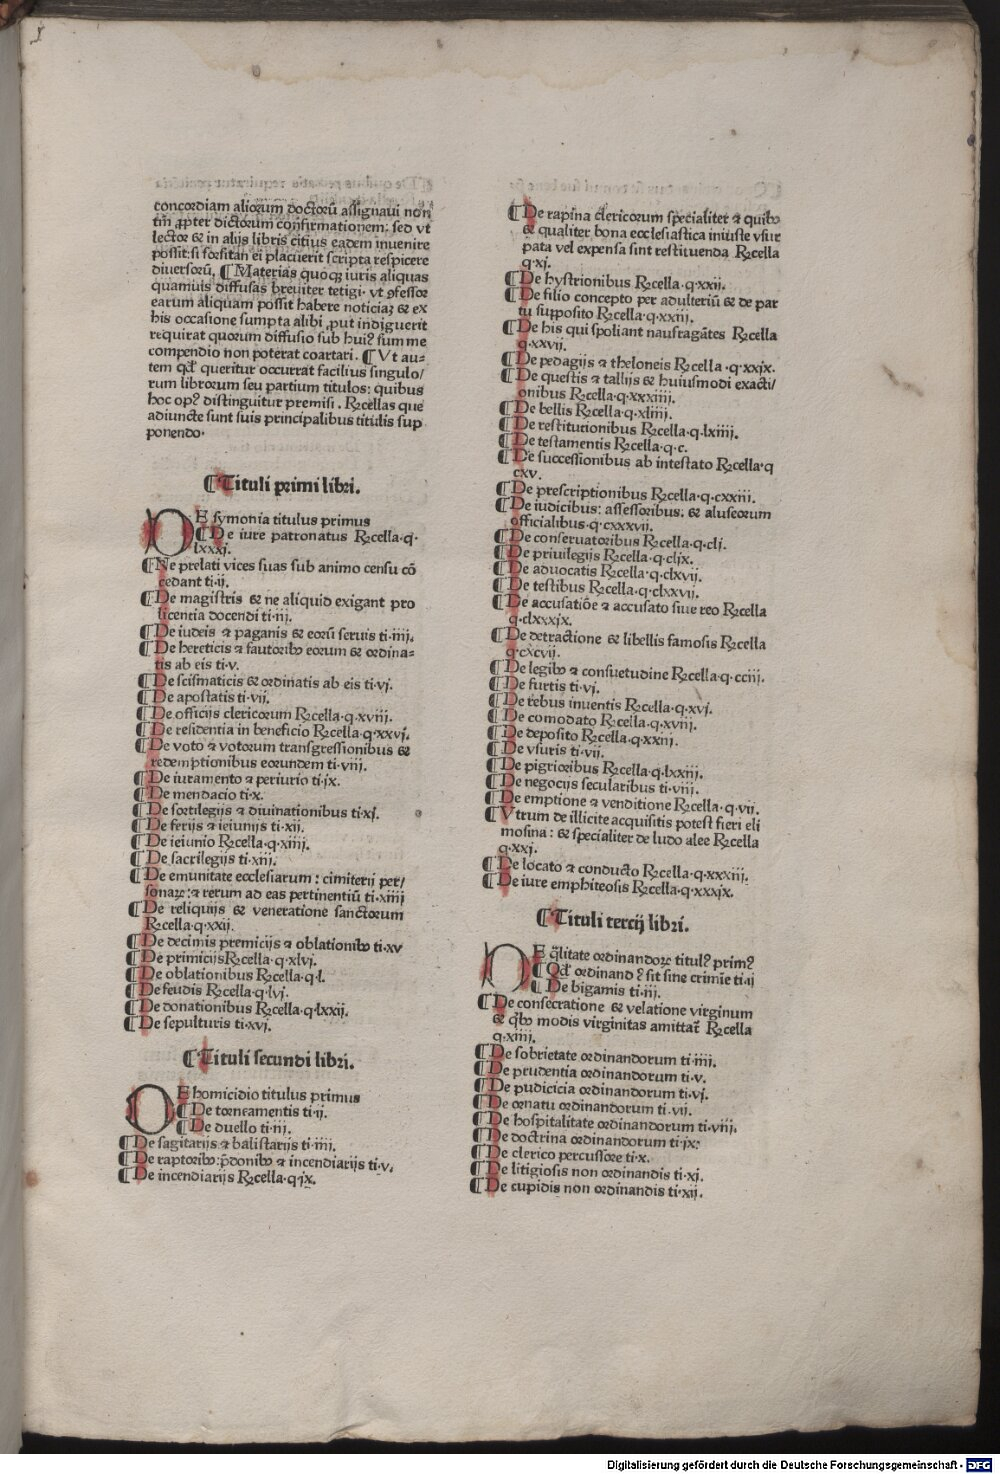 concordiam aliorum doctorū assignaui non
tm̄ ꝓpter dictorum confirmationem: sed vt
lector & in alijs libris citius eadem inuenire
possit: si forsitan ei placuerit scripta respicere
diuersorū. ¶ Materias quoqꝫ iuris aliquas
quamuis diffusas breuiter tetigi· vt ꝯfessor
earum aliquam possit habere noticiaꝫ & ex
his occasione sumpta alibi ,put indiguerit
requirat quorum diffusio sub huiꝰ summe
compendio non poterat coartari. ¶ Vt au-
tem qd̓ queritur occurrat facilius singulo/
rum librorum seu partium titulos: quibus
hoc opꝰ distinguitur premisi. Rꝛcellas que
adiuncte sunt suis principalibus titulis sup
ponendo·
¶ Tituli primi libri.
DE symonia titulus primus
¶ De iure patronatus Rꝛcella·q·
lxxxj.
¶ Ne prelati vices suas sub animo censu cō
cedant ti·ij.
¶ De magistris & ne aliquid exigant pro
licentia docendi ti·iij.
¶ De iudeis ⁊ paganis & eorū seruis ti·iiij.
¶ De hereticis ⁊ fautoribꝰ eorum & ordina-
tis ab eis ti·v.
¶ De scismaticis & ordinatis ab eis ti·vj.
¶ De apostatis ti·vij.
¶ De officijs clericorum Rꝛcella·q·xviij.
¶ De residentia in beneficio Rꝛcella·q·xxvj.
¶ De voto ⁊ votorum transgressionibus &
redemptionibus eorundem ti·viij.
¶ De iuramento ⁊ periurio ti·jx.
¶ De mendacio ti·x.
¶ De sortilegijs ⁊ diuinationibus ti·xj.
¶ De ferijs ⁊ ieiunijs ti·xij.
¶ De ieiunio Rꝛcella·q·xiiij.
¶ De sacrilegijs ti·xiij.
¶ De emunitate ecclesiarum: cimiterij per/
sonaꝝ: ⁊ rerum ad eas pertinentiū ti·xiiij
¶ De reliquijs & veneratione sanctorum
Rꝛcella·q·xxij.
¶ De decimis premicijs ⁊ oblationibꝰ ti·xv
¶ De primicijs Rꝛcella·q·xlvj.
¶ De oblationibus Rꝛcella·q·l.
¶ De feudis Rꝛcella·q·lvj.
¶ De donationibus Rꝛcella·q·lxxij.
¶ De sepulturis ti·xvj.
¶ Tituli secundi libri.
DE homicidio titulus primus
¶ De torneamentis ti·ij.
¶ De duello ti·iij.
¶ De sagitarijs ⁊ balistarijs ti·iiij.
¶ De raptoribꝰ: p̄donibꝰ ⁊ incendiarijs ti·v.
¶ De incendiarijs Rꝛcella·q·jx.
¶ De rapina clericorum specialiter ⁊ quibꝰ
& qualiter bona ecclesiastica iniuste vsur
pata vel expensa sint restituenda Rꝛcella
q·xj.
¶ De hystrionibus Rꝛcella·q·xxij.
¶ De filio concepto per adulteriū & de par
tu supposito Rꝛcella·q·xxiij.
¶ De his qui spoliant naufragātes Rꝛcella
q·xxvij.
¶ De pedagijs ⁊ theloneis Rꝛcella·q·xxjx.
¶ De questis ⁊ tallijs & huiusmodi exacti/
onibus Rꝛcella·q·xxxiiij.
¶ De bellis Rꝛcella·q·xliiij.
¶ De restitutionibus Rꝛcella·q·lxiiij.
¶ De testamentis Rꝛcella·q·c.
¶ De successionibus ab intestato Rꝛcella·q
cxv.
¶ De prescriptionibus Rꝛcella·q·cxxiij.
¶ De iudicibus: assessoribus: & aliuseorum
officialibus·q·cxxxvij.
¶ De conseruatoribus Rꝛcella·q·clj.
¶ De priuilegijs Rꝛcella·q·cljx.
¶ De aduocatis Rꝛcella·q·clxvij.
¶ De testibus Rꝛcella·q·clxxvij.
¶ De accusatiōe ⁊ accusato siue reo Rꝛcella
q·clxxxjx.
¶ De detractione & libellis famosis Rꝛcella
q·cxcvij.
¶ De legibꝰ ⁊ consuetudine Rꝛcella·q·cciij.
¶ De furtis ti·vj.
¶ De rebus inuentis Rꝛcella·q·xvj.
¶ De comodato Rꝛcella·q·xviij.
¶ De deposito Rꝛcella·q·xxiij.
¶ De vsuris ti·vij.
¶ De pigrioribus Rꝛcella·q·lxxiij.
¶ De negocijs secularibus ti·viij.
¶ De emptione ⁊ venditione Rꝛcella·q·vij.
¶ Vtrum de illicite acquisitis potest fieri eli
mosina: & specialiter de ludo alee Rꝛcella
q·xxj.
¶ De locato ⁊ conducto Rꝛcella·q·xxxiij.
¶ De iure emphiteosis Rꝛcella·q·xxxjx.
¶ Tituli tercij libri.
DE q̄litate ordinandoꝝ titulꝰ primꝰ
¶ Qd̓ ordinandꝰ sit sine crimīe ti·ij
¶ De bigamis ti·iij.
¶ De consecratione & velatione virginum
& qͥbꝰ modis virginitas amittat̄ Rꝛcella
q·xiiij.
¶ De sobrietate ordinandorum ti·iiij.
¶ De prudentia ordinandorum ti·v.
¶ De pudicicia ordinandorum ti·vj.
¶ De ornatu ordinandorum ti·vij.
¶ De hospitalitate ordinandorum ti·viij.
¶ De doctrina ordinandorum ti·jx:
¶ De clerico percussore ti·x.
¶ De litigiosis non ordinandis ti·xj.
¶ De cupidis non ordinandis ti·xij.
Digitalisierung gefördert durch die Deutsche Forschungsgemeinschaft - DFG